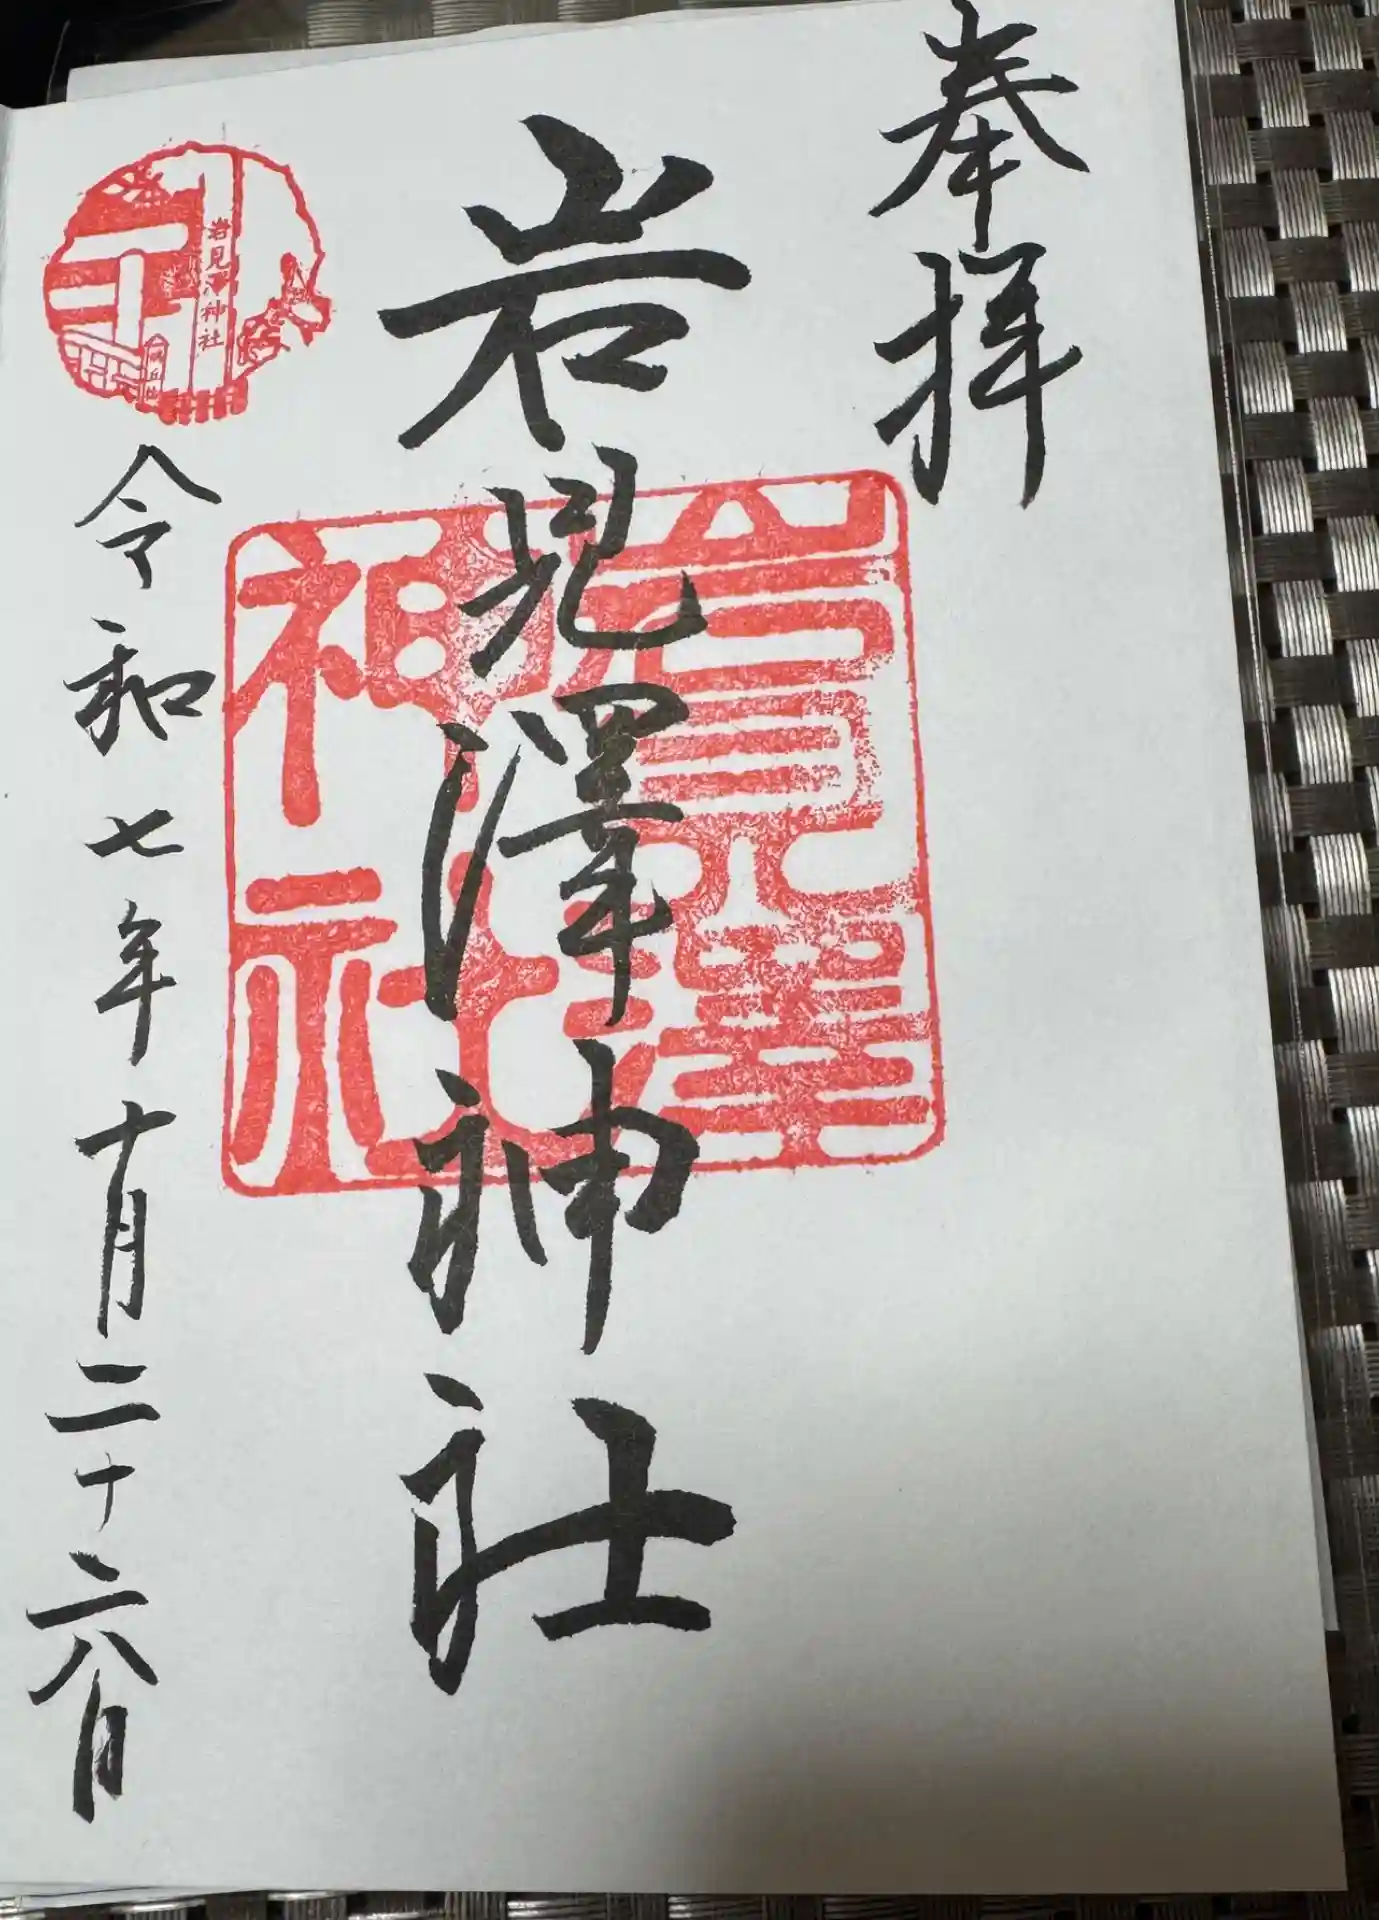 奉拝
岩見澤神社
岩見澤神社
岩見沢神社
令和七年十月二十六日